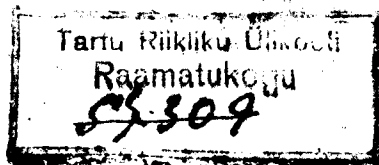 Tartu Riikliku Ülikooli
Raamatukogu
55.309